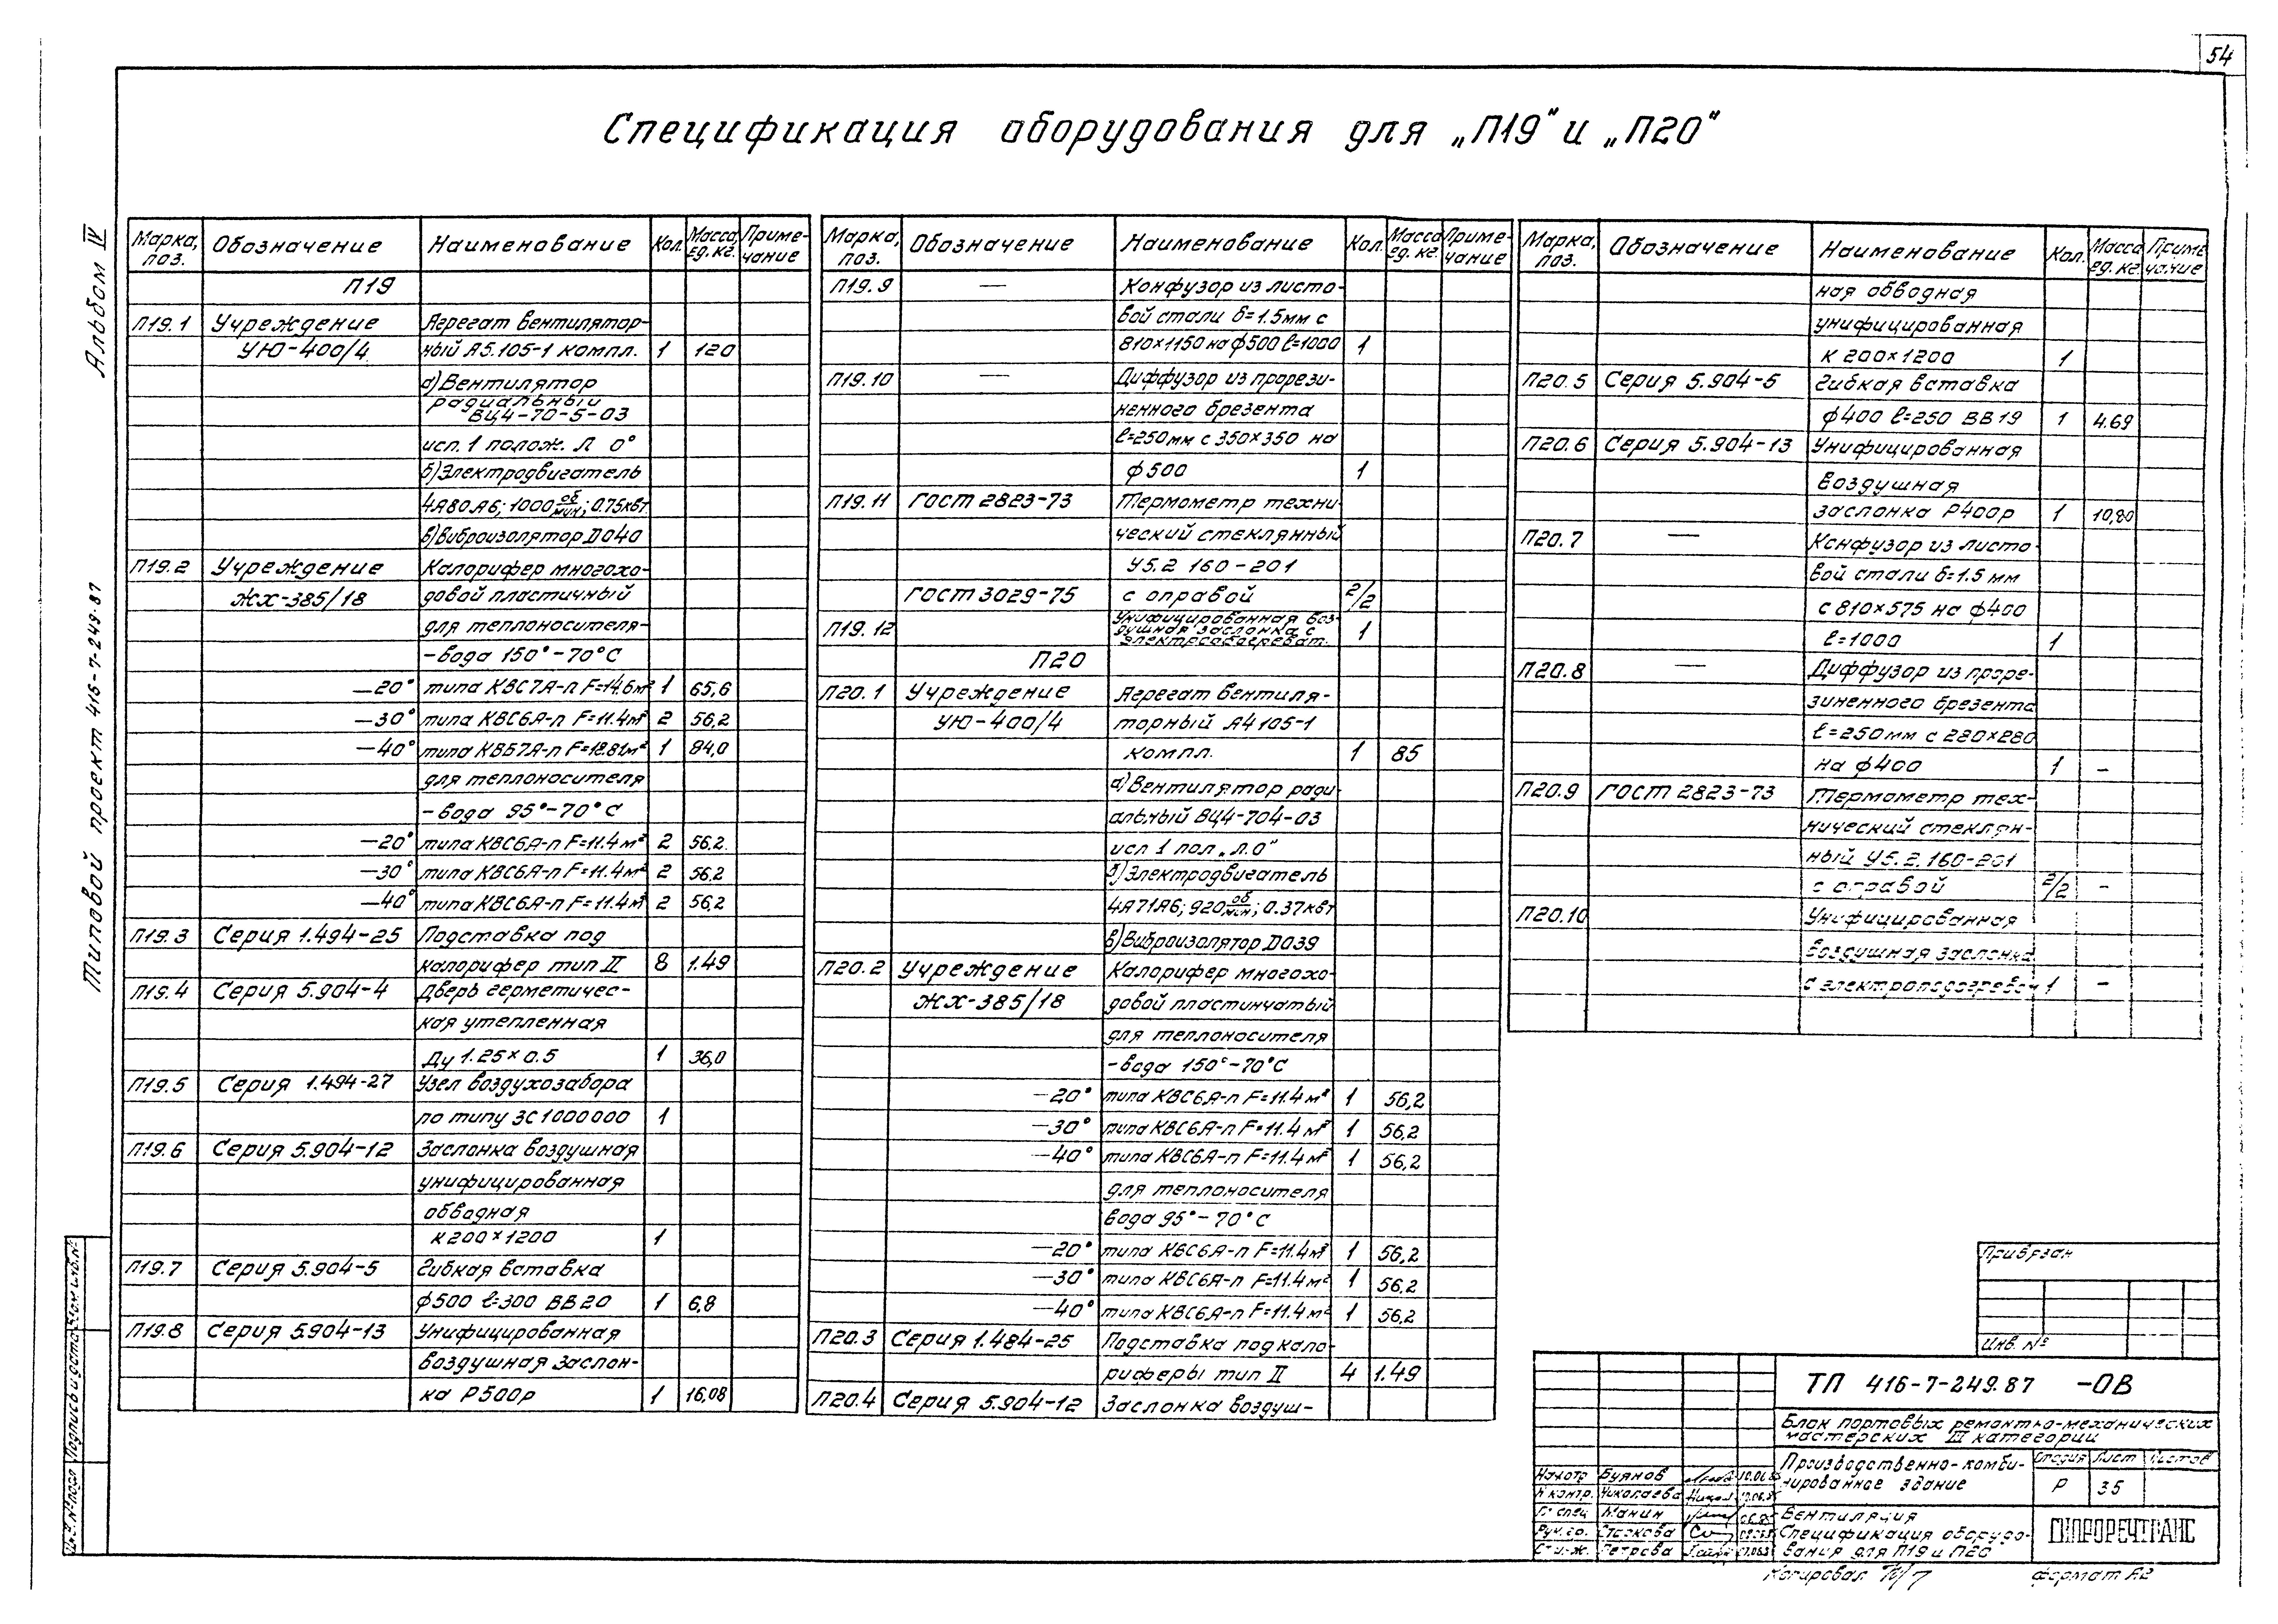 54
Спецификация оборудования для „П19“ и „П20“
Альбом IV
Типовой проект 416-7-249.87
Марка, поз. Обозначение Наименование Кол. Масса, ед. кг. Приме-чание
П19
П19.1 Учреждение Агрегат вентилятор-
УЮ-400/4 ный А5.105-1 компл. 1 120
а) Вентилятор
радиальный
ВЦ4-70-5-03
исп. 1 полож. Л 0°
б) Электродвигатель
4А80А6; 1000 об/мин; 0.75квт
в) Виброизолятор D040
П19.2 Учреждение Калорифер многохо-
ЖХ-385/18 довой пластичный
для теплоносителя-
-вода 150°-70°С
-20° типа КВС7А-п F=14.6м² 1 65,6
-30° типа КВС6А-п F=11.4м² 2 56,2
-40° типа КВБ7А-п F=18.81м² 1 84,0
для теплоносителя
-вода 95°-70°С
-20° типа КВС6А-п F=11.4м² 2 56,2.
-30° типа КВС6А-п F=11.4м² 2 56,2
-40° типа КВС6А-п F=11.4м² 2 56,2
П19.3 Серия 1.494-25 Подставка под
калорифер тип II 8 1.49
П19.4 Серия 5.904-4 Дверь герметичес-
кая утепленная
Ду 1.25×0.5 1 36,0
П19.5 Серия 1.494-27 Узел воздухозабора
по типу ЗС1000000 1
П19.6 Серия 5.904-12 Заслонка воздушная
унифицированная
обводная
К200×1200 1
П19.7 Серия 5.904-5 Гибкая вставка
ф500 ℓ=300 ВВ20 1 6,8
П19.8 Серия 5.904-13 Унифицированная
воздушная заслон-
ка Р500р 1 16,08
Марка, поз. Обозначение Наименование Кол. Масса ед. кг. Приме-чание
П19.9 — Конфузор из листо-
вой стали б=1.5мм с
810×1150 на ф500 ℓ=1000 1
П19.10 — Диффузор из прорези-
ненного брезента
ℓ=250мм с 350×350 на
ф500 1
П19.11 ГОСТ 2823-73 Термометр техни-
ческий стеклянный
У5.2 160-201
ГОСТ 3029-75 с оправой 2/2
П19.12 Унифицированная воз-
душная заслонка с
электрообогреват. 1
П20
П20.1 Учреждение Агрегат вентиля-
УЮ-400/4 торный А4105-1
компл. 1 85
а) Вентилятор ради-
альный ВЦ4-704-03
исп 1 пол „Л.0“
б) Электродвигатель
4А71А6; 920 об/мин; 0.37квт
в) Виброизолятор D039
П20.2 Учреждение Калорифер многохо-
ЖХ-385/18 довой пластинчатый
для теплоносителя
-вода 150°-70°С
-20° типа КВС6А-п F=11.4м² 1 56,2
-30° типа КВС6А-п F=11.4м² 1 56,2
-40° типа КВС6А-п F=11.4м² 1 56,2
для теплоносителя
вода 95°-70°С
-20° типа КВС6А-п F=11.4м² 1 56,2
-30° типа КВС6А-п F=11.4м² 1 56,2
-40° типа КВС6А-п F=11.4м² 1 56,2
П20.3 Серия 1.484-25 Подставка под кало-
риферы тип II 4 1.49
П20.4 Серия 5.904-12 Заслонка воздуш-
Марка, поз. Обозначение Наименование Кол. Масса ед. кг Приме чание
ная обводная
унифицированная
К 200×1200 1
П20.5 Серия 5.904-5 Гибкая вставка
ф400 ℓ=250 ВВ19 1 4.69
П20.6 Серия 5.904-13 Унифицированная
воздушная
заслонка Р400р 1 10,80
П20.7 — Конфузор из листо-
вой стали б=1.5 мм
с 810×575 на ф400
ℓ=1000 1
П20.8 — Диффузор из проре-
зиненного брезента
ℓ=250мм с 280×280
на ф400 1 -
П20.9 ГОСТ 2823-73 Термометр тех-
нический стеклян-
ный У5.2.160-201
с оправой 2/2 -
П20.10 Унифицированная
воздушная заслонка
с электроподогревом 1 -
Привязан
Инв. №
ТП 416-7-249.87 -ОВ
Блок портовых ремонтно-механических
мастерских III категории
Производственно-комби-
нированное здание
Стадия Лист Листов
Р 35
Вентиляция
Спецификация оборудо-
вания для П19 и П20
ГИПРОРЕЧТРАНС
Нач.отд Буянов
Н контр. Николаева
Гл спец Манин
Рук. гр.
Ст.инж. Петрова
Копировал
формат А2
Инв. № подл Подпись и дата Взам инв. №